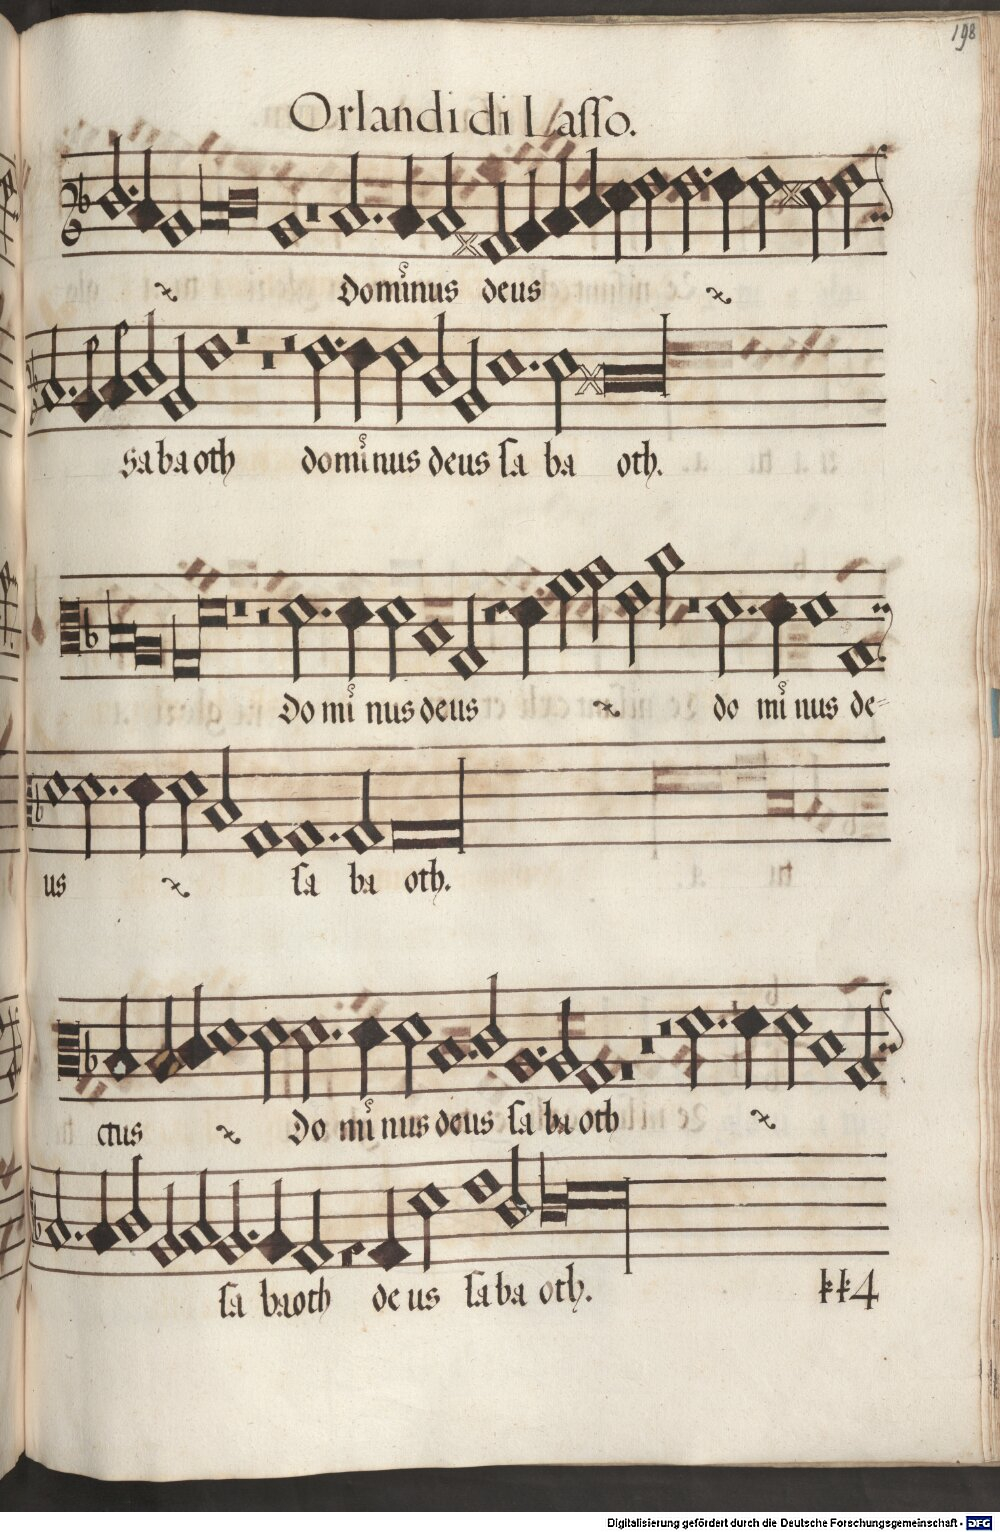 198
Orlandi di Lasso.
Dominus deus
Sabaoth dominus deus sa ba oth.
Do mi nus deus do mi nus de=
us sa ba oth.
ctus Do mi nus deus sa ba oth
sa baoth de us sa ba oth.
kk4
Digitalisierung gefördert durch die Deutsche Forschungsgemeinschaft - DFG